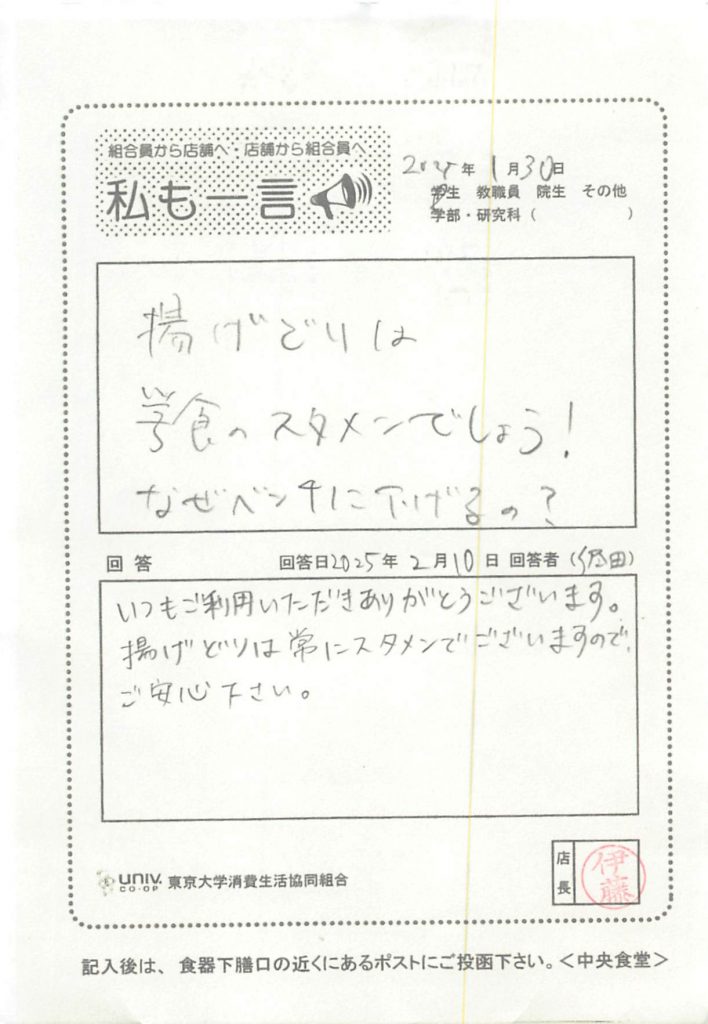 組合員から店舗へ・店舗から組合員へ
私も一言
2025年 1月30日
学生 教職員 院生 その他
学部・研究科（ ）
揚げどりは
学食のスタメンでしょう！
なぜベンチに下げるの？
回答 回答日2025年 2月10日 回答者（ 田）
いつもご利用いただきありがとうございます。
揚げどりは常にスタメンでございますので、
ご安心下さい。
UNIV. CO-OP 東京大学消費生活協同組合
店長 伊藤
記入後は、食器下膳口の近くにあるポストにご投函下さい。＜中央食堂＞